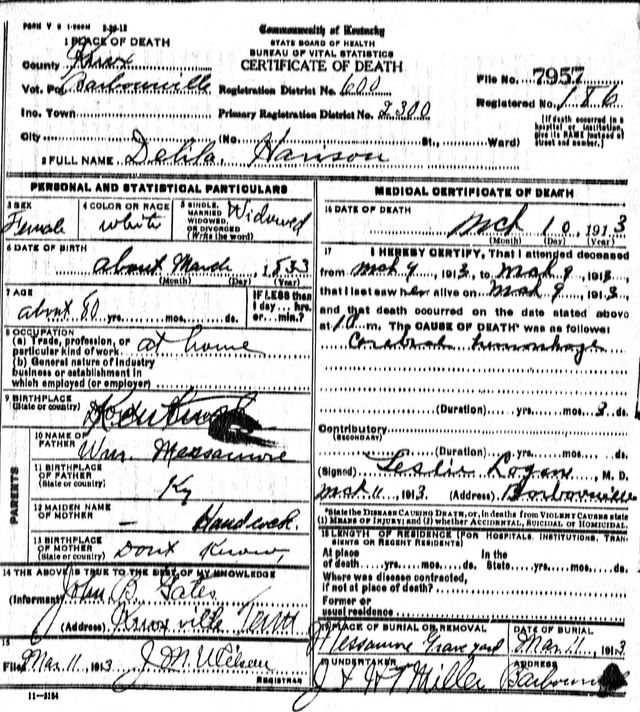 FORM V S 1-500M 2-26-12
Commonwealth of Kentucky
STATE BOARD OF HEALTH
BUREAU OF VITAL STATISTICS
CERTIFICATE OF DEATH
1 PLACE OF DEATH
County Knox
Vot. Pct. Barbourville
Inc. Town
City
Registration District No. 600
Primary Registration District No. 2300
(No. St., Ward)
File No. 7957
Registered No. 186
[If death occurred in a hospital or institution, give its NAME instead of street and number.]
2 FULL NAME Delila Harrison
PERSONAL AND STATISTICAL PARTICULARS
3 SEX Female
4 COLOR OR RACE white
5 SINGLE, MARRIED WIDOWED, OR DIVORCED (Write the word) Widowed
6 DATE OF BIRTH
about March 1833
(Month) (Day) (Year)
7 AGE
about 80 yrs. mos. ds.
IF LESS than 1 day... hrs. or... min.?
8 OCCUPATION
(a) Trade, profession, or particular kind of work at home
(b) General nature of industry
business or establishment in
which employed (or employer)
9 BIRTHPLACE
(State or country)
PARENTS
10 NAME OF FATHER
Wm. Messamore
11 BIRTHPLACE OF FATHER (State or country)
Ky
12 MAIDEN NAME OF MOTHER
13 BIRTHPLACE OF MOTHER (State or country)
Dont Know
14 THE ABOVE IS TRUE TO THE BEST OF MY KNOWLEDGE
(Informant) John B. Gates
(Address) Knoxville Tenn
15
Filed Mar. 11, 1913 J M Wilson
REGISTRAR
11-3184
MEDICAL CERTIFICATE OF DEATH
16 DATE OF DEATH
Mch 10, 1913
(Month) (Day) (Year)
17 I HEREBY CERTIFY, That I attended deceased
from Mch 9, 1913, to Mch 9, 1913,
that I last saw her alive on Mch 9, 1913,
and that death occurred on the date stated above
at 10 m. The CAUSE OF DEATH* was as follows:
Cerebral hemorrhage
(Duration) yrs. mos. 2 ds.
Contributory
(SECONDARY)
(Duration) yrs. mos. ds.
(Signed) Leslie Logan, M. D.
Mch 11, 1913 (Address) Barbourville
*State the DISEASE CAUSING DEATH, or, in deaths from VIOLENT CAUSES state
(1) MEANS OF INJURY; and (2) whether ACCIDENTAL, SUICIDAL or HOMICIDAL.
18 LENGTH OF RESIDENCE (FOR HOSPITALS, INSTITUTIONS, TRANSIENTS OR RECENT RESIDENTS)
At place of death yrs. mos. ds. In the State yrs. mos. ds.
Where was disease contracted, if not at place of death?
Former or usual residence
19 PLACE OF BURIAL OR REMOVAL
Messamore Grave yard
DATE OF BURIAL
Mar. 11, 1913
20 UNDERTAKER
J & H T Miller
ADDRESS